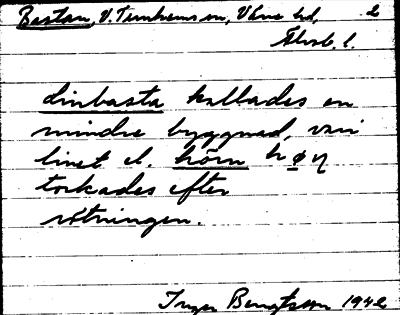 Bastan, V. Tunhems sn, Väne hd, 2
Älvsb. l.
linbasta kallades en
mindre byggnad, vari
linet el. hörn
torkades efter
rötningen.
Inger Bengtsson 1942